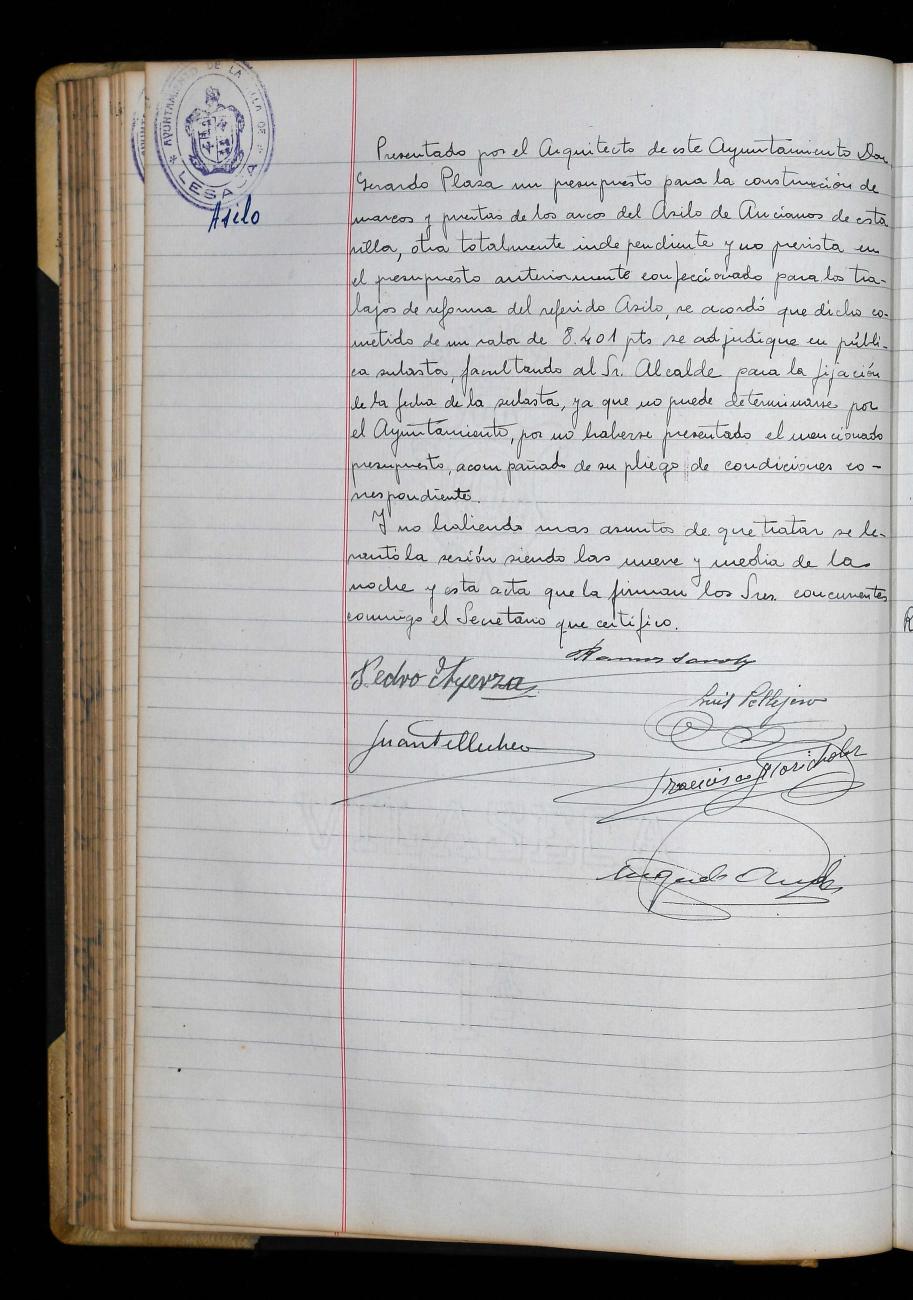 AYUNTAMIENTO DE LA VILLA DE
LESACA
Asilo
Presentado por el Arquitecto de este Ayuntamiento Don
Gerardo Plaza un presupuesto para la construcción de
marcos y puertas de los arcos del Asilo de Ancianos de esta
villa, otra totalmente independiente y no prevista en
el presupuesto anteriormente confeccionado para los tra-
bajos de reforma del referido Asilo, se acordó que dicho co-
metido de un valor de 8.401 pts se adjudique en públi-
ca subasta, facultando al Sr. Alcalde para la fijación
de la fecha de la subasta, ya que no puede determinarse por
el Ayuntamiento, por no haberse presentado el mencionado
presupuesto, acompañado de su pliego de condiciones co-
rrespondiente.
Y no habiendo mas asuntos de que tratar se le-
vanto la sesión siendo las nueve y media de la
noche y esta acta que la firman los Sres. concurrentes
conmigo el Secretario que certifico.
Ramon
Pedro
Luis Pellejero
Juan Tellechea
Francisco